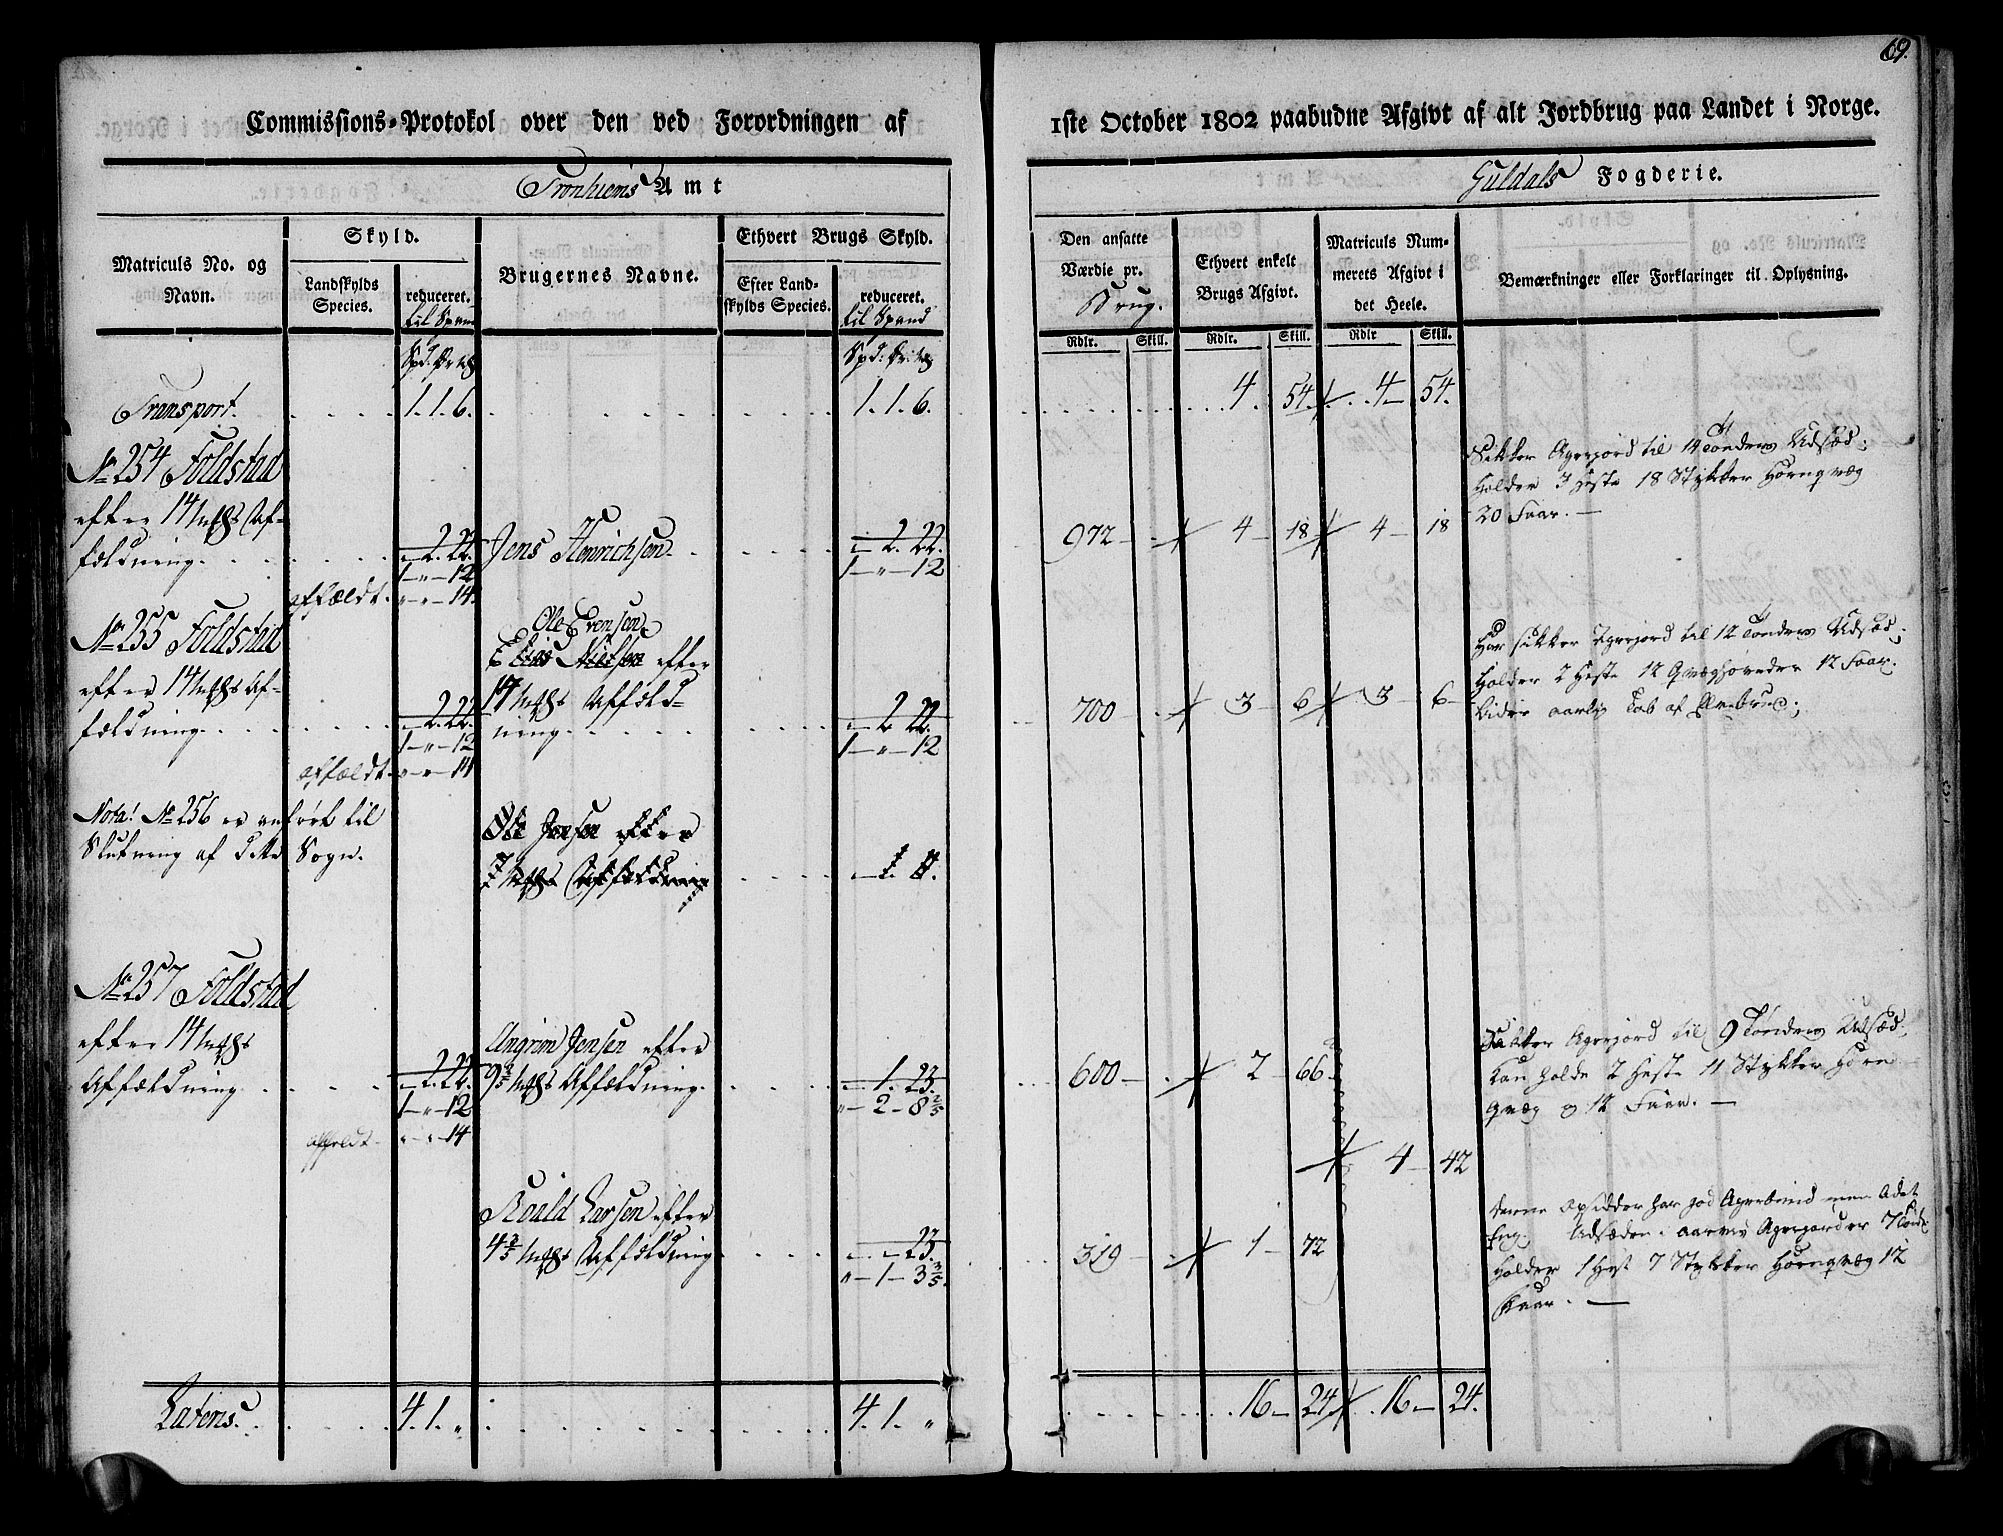 69.
Commissions-Protokol over den ved Forordningen af 1ste October 1802 paabudne Afgivt af alt Jordbrug paa Landet i Norge.
Tronhiems Amt
Guldals Fogderie.
Matriculs No. og Navn.
Skyld.
Landskylds Species.
reduceret. til Spand
Brugernes Navne.
Ethvert Brugs Skyld.
Efter Landskylds Species.
reduceret. til Spand
Den ansatte Værdie pr. Brug.
Ethvert enkelt Brugs Afgivt.
Matriculs Nummerets Afgivt i det Heele.
Bemærkninger eller Forklaringer til Oplysning.
Rdlr. Skill. Rdlr. Skill. Rdlr Skill.
Transport. 1. 1. 6. 1. 1. 6. 4. 54. 4 54.
No 254 Foldstad
efter 14 Af-
fældning. 2. 22. Jens Henrichsen 2. 22. 972 4 18 4 18
1 " 12 1 " 12
affældt " " 14.
Sikker Agerjord til 14 Tønders Udsæd;
Holder 3 Heste 18 Stykker Hornqvæg
20 Faar.
No 255 Foldstad
Ole Evensen
Elias Nielsen efter
efter 14 Af-
14 Affæld-
fældning. 2. 22. ning 2 22. 700 3 6 3 6
1 " 12 1 " 12
affældt " " 14
Har sikker Agerjord til 12 Tønders Udsæd;
Holder 2 Heste 12 Qvæghøveder 12 Faar.
Lider aarlig Tab af Elvebrud;
Nota! No 256 er anført til
Slutning af dette Sogn.
Ole Jensen efter
Affældning
No 257 Foldstad
efter 14
Affældning 2. 22.
1 " 12
affeldt " " 14
Angrim Jensen efter
9 3/5 Affældning. 1. 23. 600 2 66
" 2 8 2/5
Sikker Agerjord til 9 Tønders Udsæd,
Kan holde 2 Heste 11 Stykker Horn
Qvæg og 12 Faar.
4 42
Roald Larsen efter
4 2/5 Affældning 23. 319 1 72
" 1 3 3/5.
denne Opsidder har god Agerbund men
Eng. Udsæden i Agerjord er 7
Holder 1 Hest 7 Stykker Hornqvæg 12
Faar.
Latens. 4. 1. " 4. 1. " 16 24 16 24.